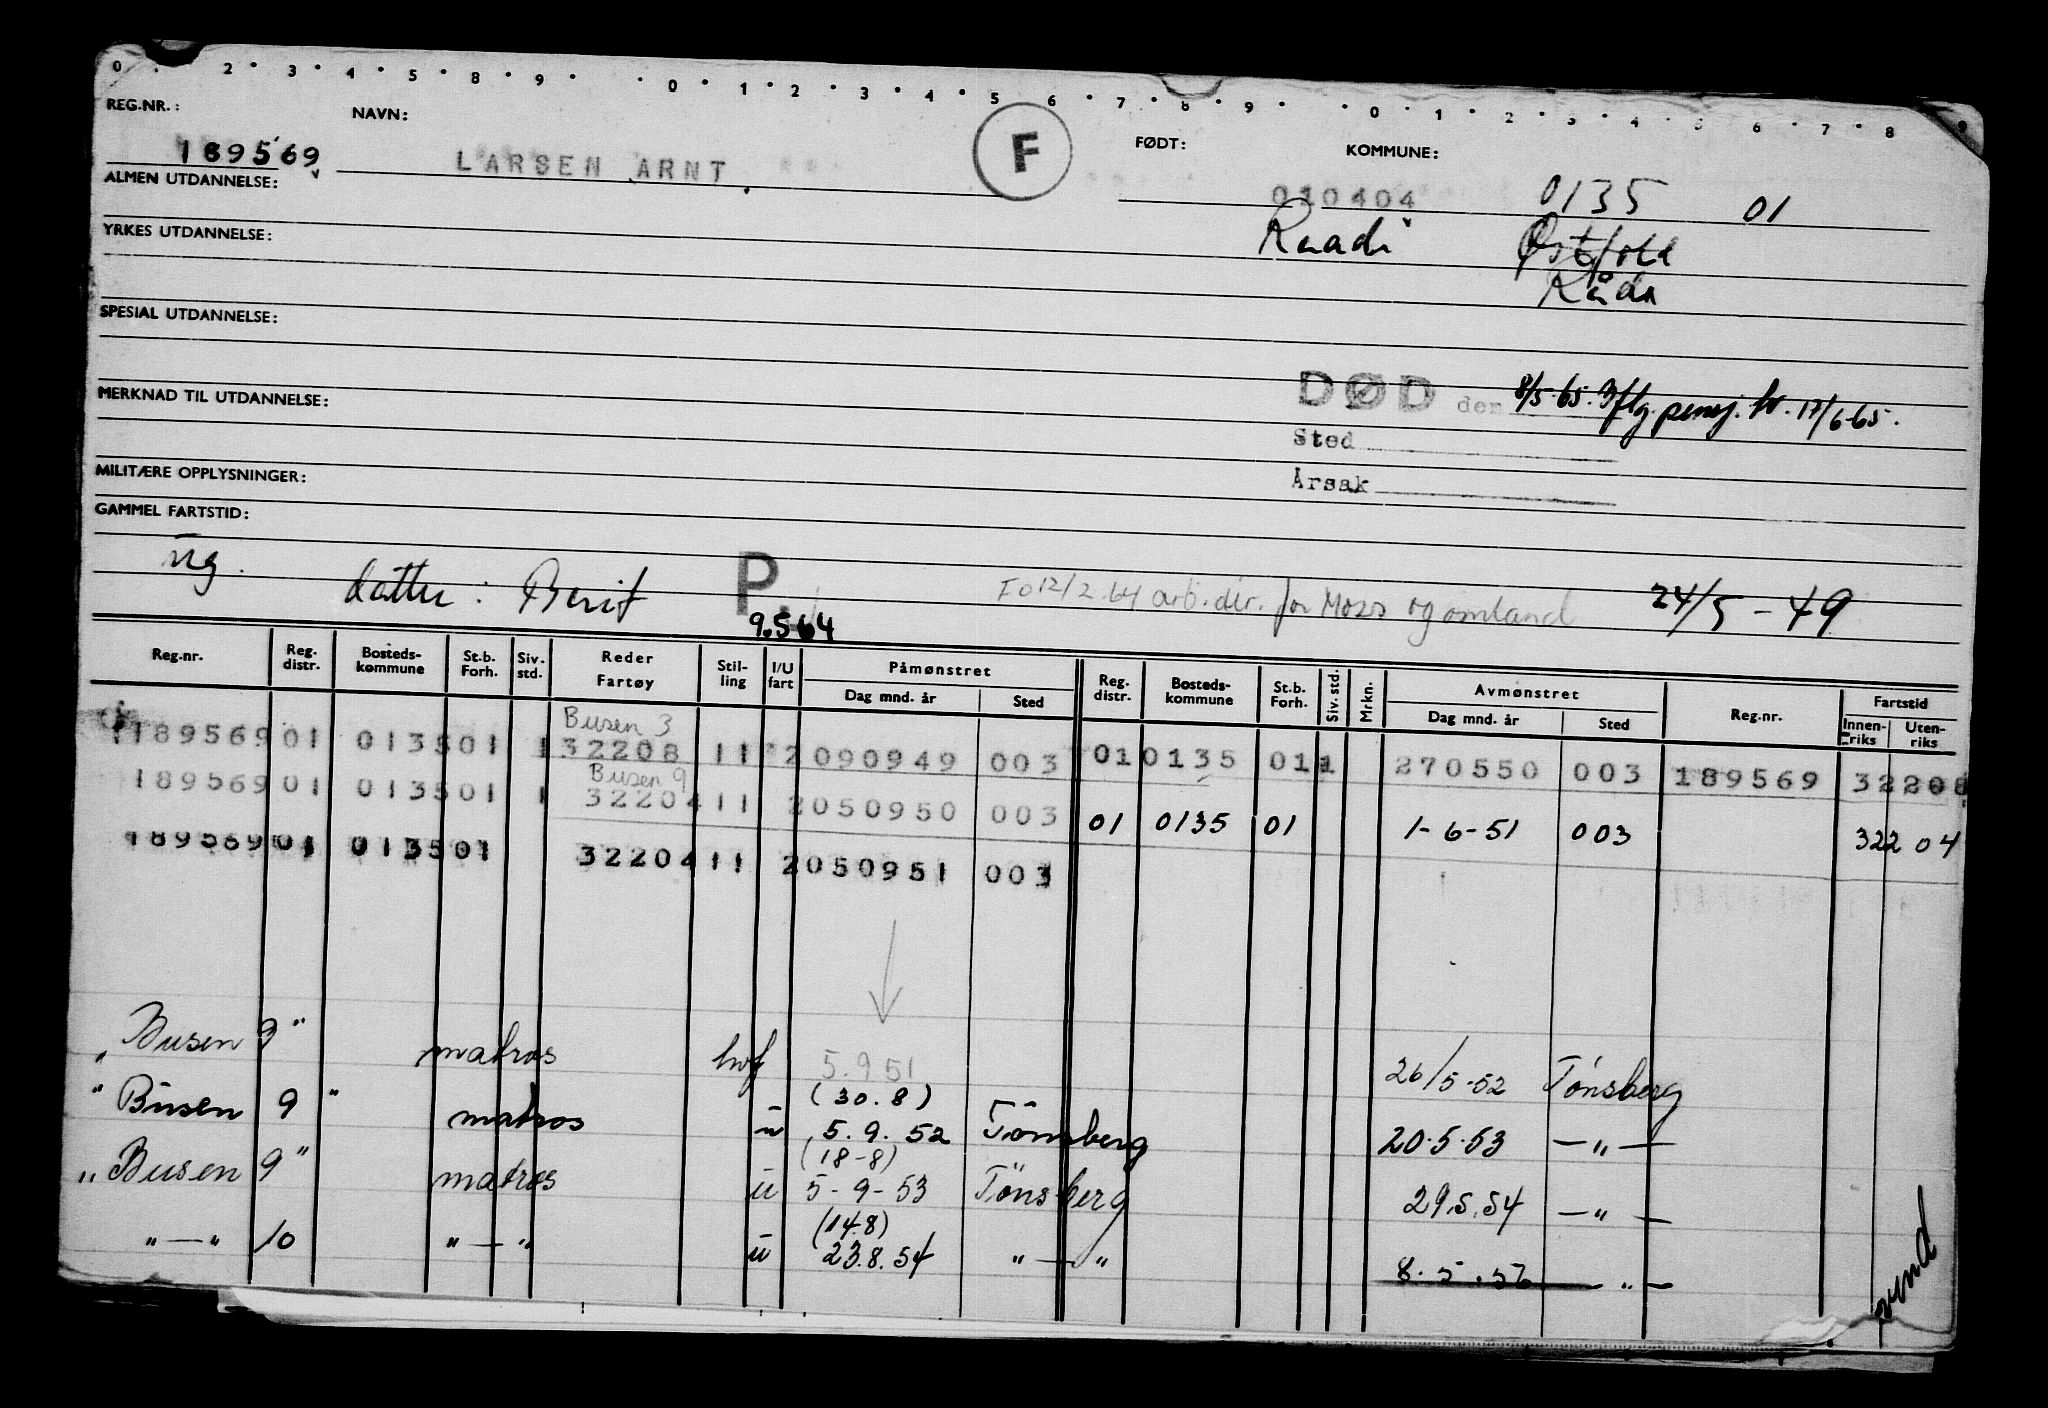 0 2 3 4 5 8 9 0 1 2 3 4 5 6 7 8 9 0 1 2 3 4 5 6 7 8 9
REG.NR.: NAVN: F FØDT: KOMMUNE:
189569 LARSEN ARNT 010404 0135 01
ALMEN UTDANNELSE:
Raade Østfold
YRKES UTDANNELSE:
Råde
SPESIAL UTDANNELSE:
DØD den 8/5-65. Iflg. pensj. kr. 17/6-65.
MERKNAD TIL UTDANNELSE:
Sted
MILITÆRE OPPLYSNINGER: Årsak
GAMMEL FARTSTID:
ug. datter: Berit P. Fo 12/2.64 arb.dir. for Moss og omland 24/5-49
9.5 64
Reg.nr. Reg. distr. Bosteds-kommune St.b. Forh. Siv. std. Reder Fartøy Stil-ling I/U fart Påmønstret Reg. distr. Bosteds-kommune St.b. Forh. Siv. std. Mrkn. Avmønstret Reg.nr. Fartstid
Dag mnd. år Sted Dag mnd. år Sted Innen-riks Uten-riks
Busen 3
189569 01 0135 01 1 32208 11 2 090949 003 01 0135 01 1 270550 003 189569 32208
Busen 9
189569 01 0135 01 1 32204 11 2 050950 003 01 0135 01 1-6-51 003 32204
189569 01 0135 01 32204 11 2 050951 003
"Busen 9" matros hvf 5.9 51 26/5-52 Tønsberg
(30.8)
"Busen 9" matros u 5.9.52 Tønsberg 20.5.53 —"—
(18-8)
"Busen 9" matros u 5-9-53 Tönsberg 29.5.54 —"—
(14.8)
"—" 10 "—" u 23.8.54 "—" 8.5.56 —"—
vend